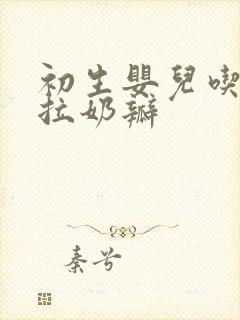 初生嬰兒喫
拉奶瓣
秦兮